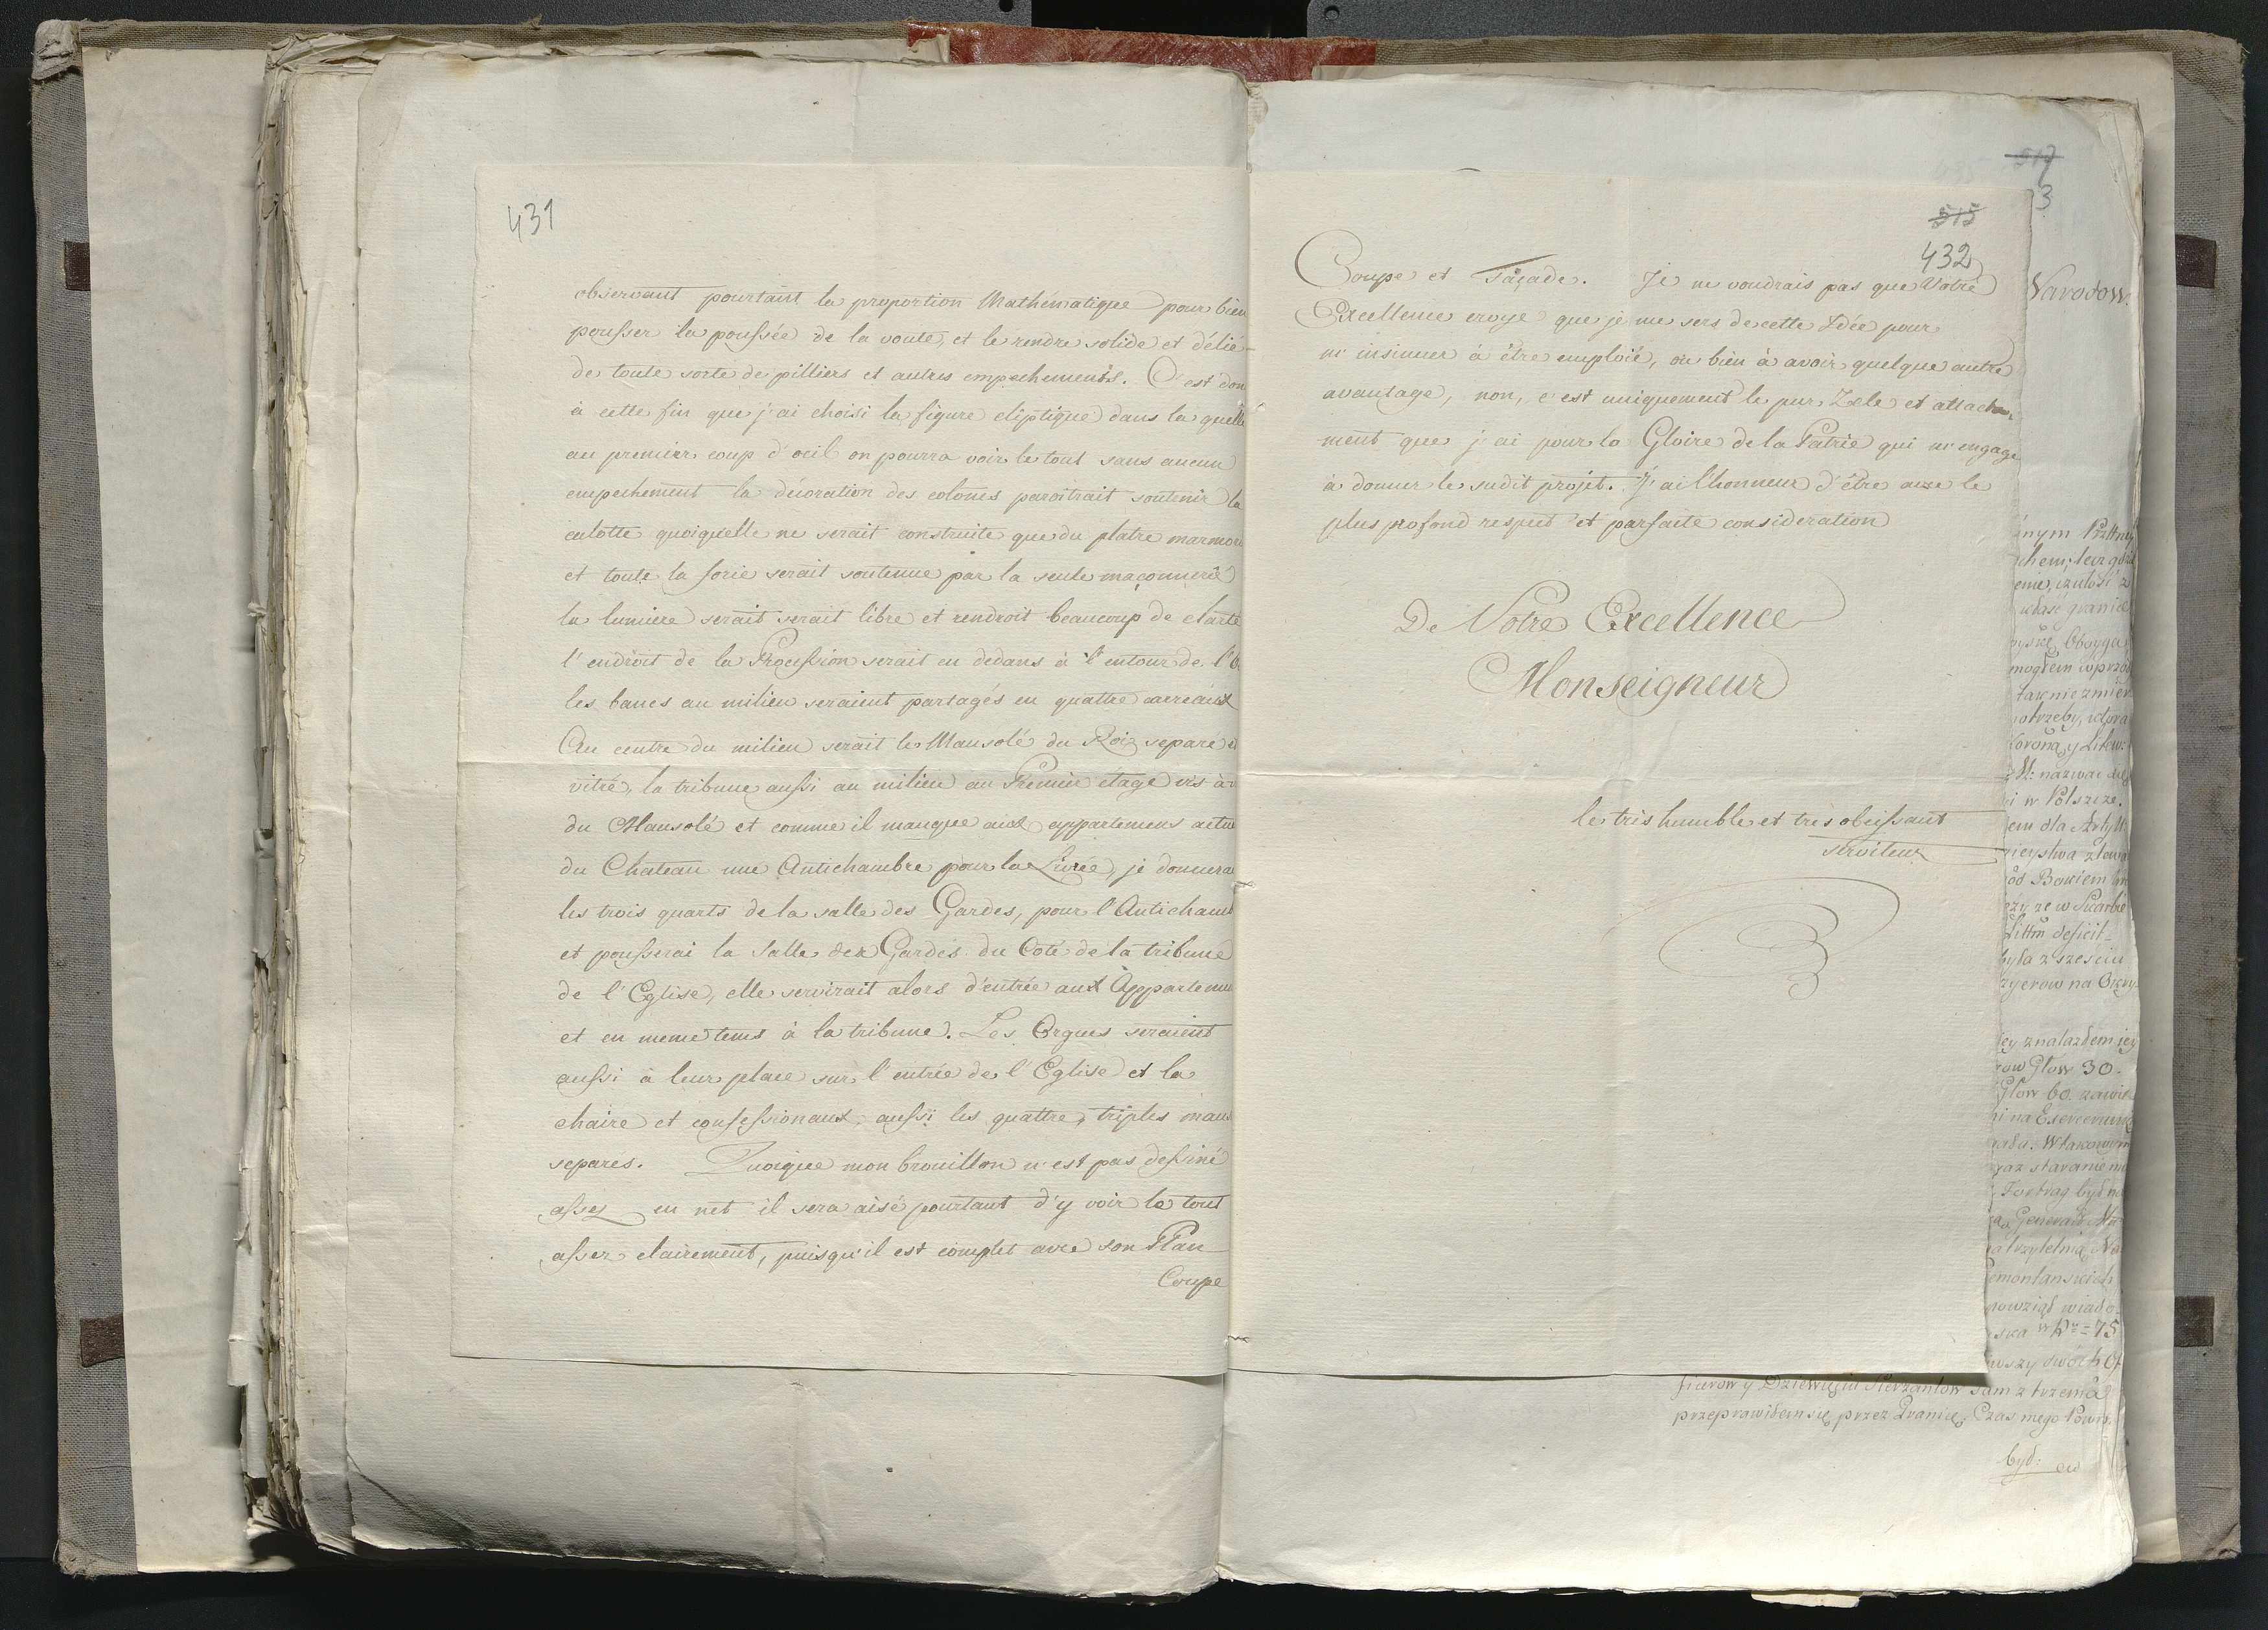 431
observant pourtant la proportion Mathématique pour bien
pousser la poussée de la voute, et le rendre solide et délié
de toute sorte de pilliers et autres empechements. C'est don
à cette fin que j'ai choisi la figure eliptique dans la quelle
au premier coup d'oeil on pourra voir le tout sans aucun
empechement la décoration des colones paroitrait soutenir la
culotte quoiquelle ne serait construite que du platre marmor
et toute la forie serait soutenue par la seule maçonnerie
la lumiere serait serait libre et rendroit beaucoup de clarté
l'endroit de la Procession serait en dedans à l'entour de l'E
les bancs au milieu seraient partagés en quattre carreaux
Au centre du milieu serait le Mausolé du Roi separé et
vitré, la tribune aussi au milieu au Premier étage vis à v
du Mausolé et comme il manque aux appartemens actu
du Chateau une Antichambre pour la Livrée, je donnera
les trois quarts de la salle des Gardes, pour l'Antichamb
et pousserai la Salle des Gardes du Coté de la tribune
de l'Eglise, elle servirait alors d'entrée aux Appartemen
et en meme tems à la tribune. Les Orgues seraient
aussi à leur place sur l'entrée de l'Eglise et la
chaire et confessionaux, aussi les quattre, triples maus
separés. Quoique mon brouillon n'est pas dessiné
assez en net il sera aisé pourtant d'y voir le tout
assez clairement, puisqu'il est complet avec son Plan
Coupe
517
3
515
432
Coupe et Façade. Je ne voudrais pas que Votre
Excellence croye que je me sers de cette Idée pour
m'insinuer à être emploié, ou bien à avoir quelque autre
avantage, non, c'est uniquement le pur Zele et attache
ment que j'ai pour la Gloire de la Patrie qui m'engage
à donner le sudit projet. J'ai l'honneur d'être avec le
plus profond respect et parfaite consideration
De Votre Excellence
Monseigneur
le tres humble et tres obeissant
serviteur
B
Narodow.
potrzeby, ktora
Korona y Litew:
nazwac
w Polszcze.
dla Artyll:
ze w Skarbie
deficit
była z sześciu
na
znalazłem iey
Głow 30.
Głow 60. zawie
starania
był na
75
wszy dwóch Of
ficerow y Dziewięciu Sierżantow sam z trzema
przeprawiłem się przez Granicę. Czas mego Powr.
był: